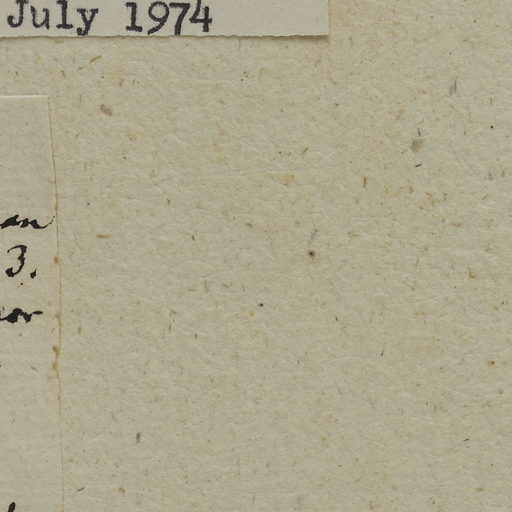 July 1974
an
3.